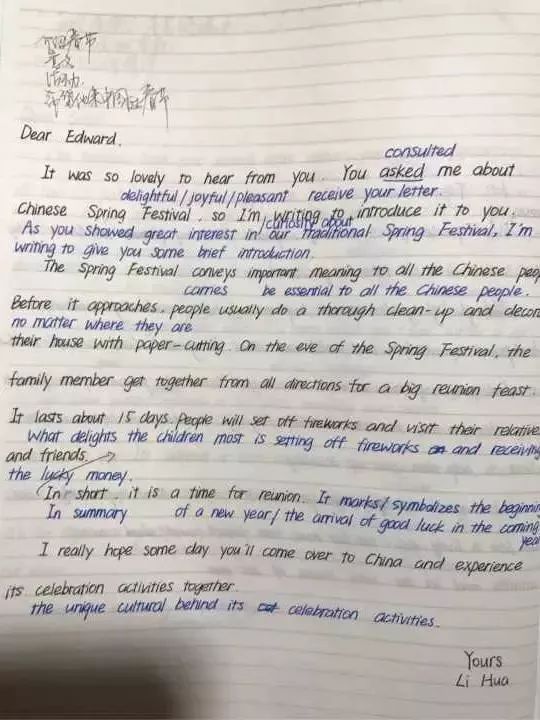 介绍春节
意义
活动
希望他来中国过春节
Dear Edward,
consulted
It was so lovely to hear from you. You asked me about
delightful/joyful/pleasant receive your letter.
Chinese Spring Festival, so I'm writing to introduce it to you.
curiosity about
As you showed great interest in our traditional Spring Festival, I'm
writing to give you some brief introduction.
The Spring Festival conveys important meaning to all the Chinese peop
carries be essential to all the Chinese people.
Before it approaches, people usually do a thorough clean-up and decor
no matter where they are
their house with paper-cutting. On the eve of the Spring Festival, the
family member get together from all directions for a big reunion feast.
It lasts about 15 days. People will set off fireworks and visit their relative
What delights the children most is setting off fireworks and receiving
and friends.
the lucky money.
In short, it is a time for reunion. It marks/symbolizes the beginnin
In summary of a new year/the arrival of good luck in the coming
year
I really hope some day you'll come over to China and experience
its celebration activities together.
the unique cultural behind its celebration activities.
Yours
Li Hua